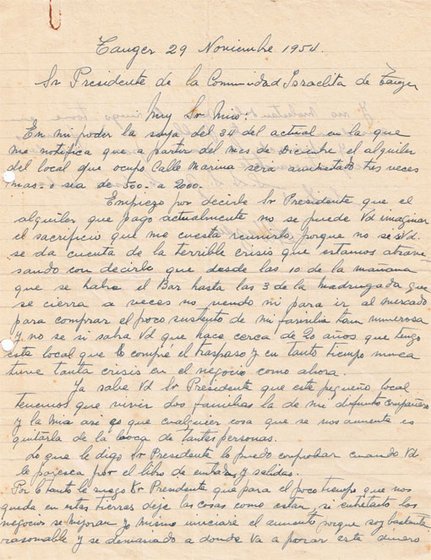 Tanger 29 Noviembre 1951.
Sr Presidente de la Comunidad Israelita de Tanger
Muy Sr Mio:
En mi poder la suya del del actual en la que
me notifica que a partir del mes de Diciembre el alquiler
del local que ocupo Calle Marina sera aumentado tres veces
mas. o sea de 500. a 2000.
Empiezo por decirle Sr Presidente que el
alquiler que pago actualmente no se puede Vd imaginar
el sacrificio que me cuesta reunirlo porque no se si Vd.
se da cuenta de la terrible crisis que estamos atrave
sando con decirle que desde las 10 de la mañana
que se habre el Bar hasta las 3 de la madrugada que
se cierra a veces no vendo ni para ir al mercado
para comprar el poco sustento de mi familia tan numerosa
y no se si sabra Vd que hace cerca de 20 años que tengo
este local que le compre el traspaso y en tanto tiempo nunca
tuve tanta crisis en el negocio como ahora.
Ya sabe Vd Sr Presidente que este pequeño local
tenemos que vivir dos familias la de mi difunto compañero
y la mia asi es que cualquier cosa que se nos aumente es
quitarla de la boca de tantas personas.
Lo que le digo Sr Presidente lo puedo comprobar cuando Vd
le paresca por el libro de entradas y salidas.
Por lo tanto le ruego Sr Presidente que para el poco tiempo que nos
queda en estas tierras deje las cosas como estan si entretanto los
negocios se mejoran yo mismo iniciare el aumento porque soy bastante
rasonable y se demasiado a donde va a parar este dinero